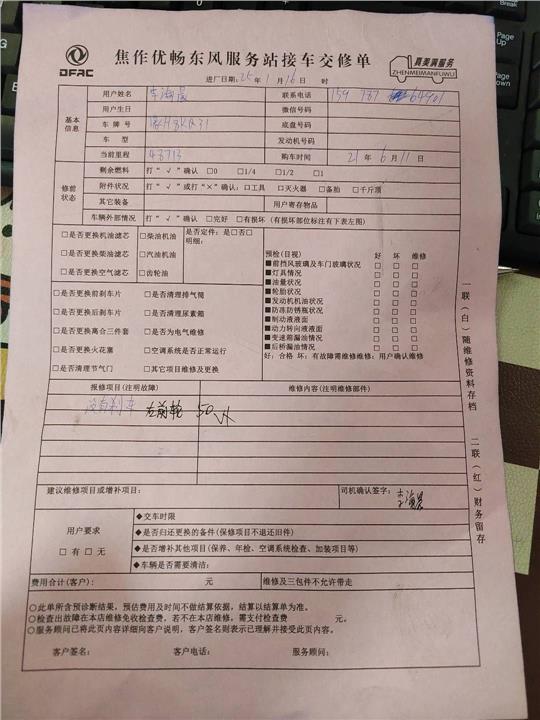 DFAC
焦作优畅东风服务站接车交修单
真美满服务
ZHENMEIMANFUWU
进厂日期:25年1月16日 时
基本信息
用户姓名
联系电话 159 787 64901
用户生日 微信号码
车牌号 底盘号码
车型 发动机号码
当前里程 43713 购车时间 21年6月11日
修前状态
剩余燃料 打“√”确认 □0 □1/4 □1/2 □1
附件状况 打“√”或打“×”确认:□工具 □灭火器 □备胎 □千斤顶
其它装备 用户寄存物品
车辆外部情况 打“√”确认 □完好 □有损坏(有损坏部位标注有下表左图)
□是否更换机油滤芯 □柴油机油 是否定件:是□否□
明细:
□是否更换柴油滤芯 □汽油机油
□是否更换空气滤芯 □齿轮油
预检(目视) 好 坏 维修
■前挡风玻璃及车门玻璃状况 □ □ □
■灯具情况 □ □ □
■油量状况 □ □ □
■轮胎状况 □ □ □
■发动机机油状况 □ □ □
■防冻防锈瓶状况 □ □ □
■制动液液面 □ □ □
■动力转向液液面 □ □ □
■变速箱漏油情况 □ □ □
■后桥漏油情况 □ □ □
好:合格 坏:有故障需维修维修:用户确认维修
□是否更换前刹车片 □是否清理排气筒
□是否更换后刹车片 □是否清理尿素箱
□是否更换离合三件套 □是否为电气维修
□是否更换火花塞 □空调系统是否正常运行
□是否清理节气门 □其它项目维修及更换
报修项目(注明故障) 维修内容(注明维修部件)
没有刹车 左前轮 50
建议维修项目或增补项目: 司机确认签字:
用户要求
□有 □无
◆交车时限
◆是否归还更换的备件(保修项目不退还旧件)
◆是否增补其他项目(保养、年检、空调系统检查、加装项目等)
◆车辆是否需要清洁:
费用合计(客户): 元 维修及三包件不允许带走
○此单所含预诊断结果,预估费用及时间不做结算依据,结算以结算单为准。
○检查出故障在本店维修免收检查费,若不在本店维修,需支付检查费 元。
○服务顾问已将此页内容详细向客户说明,客户签名则表示已理解并接受此页内容。
客户签名: 客户电话: 服务顾问:
一联(白)随维修资料存档
二联(红)财务留存